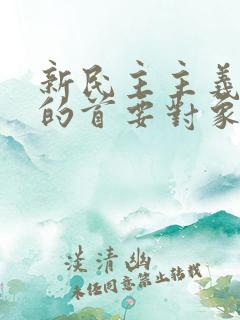 新民主主義
的首要對象
淡清幽
未经同意禁止转载